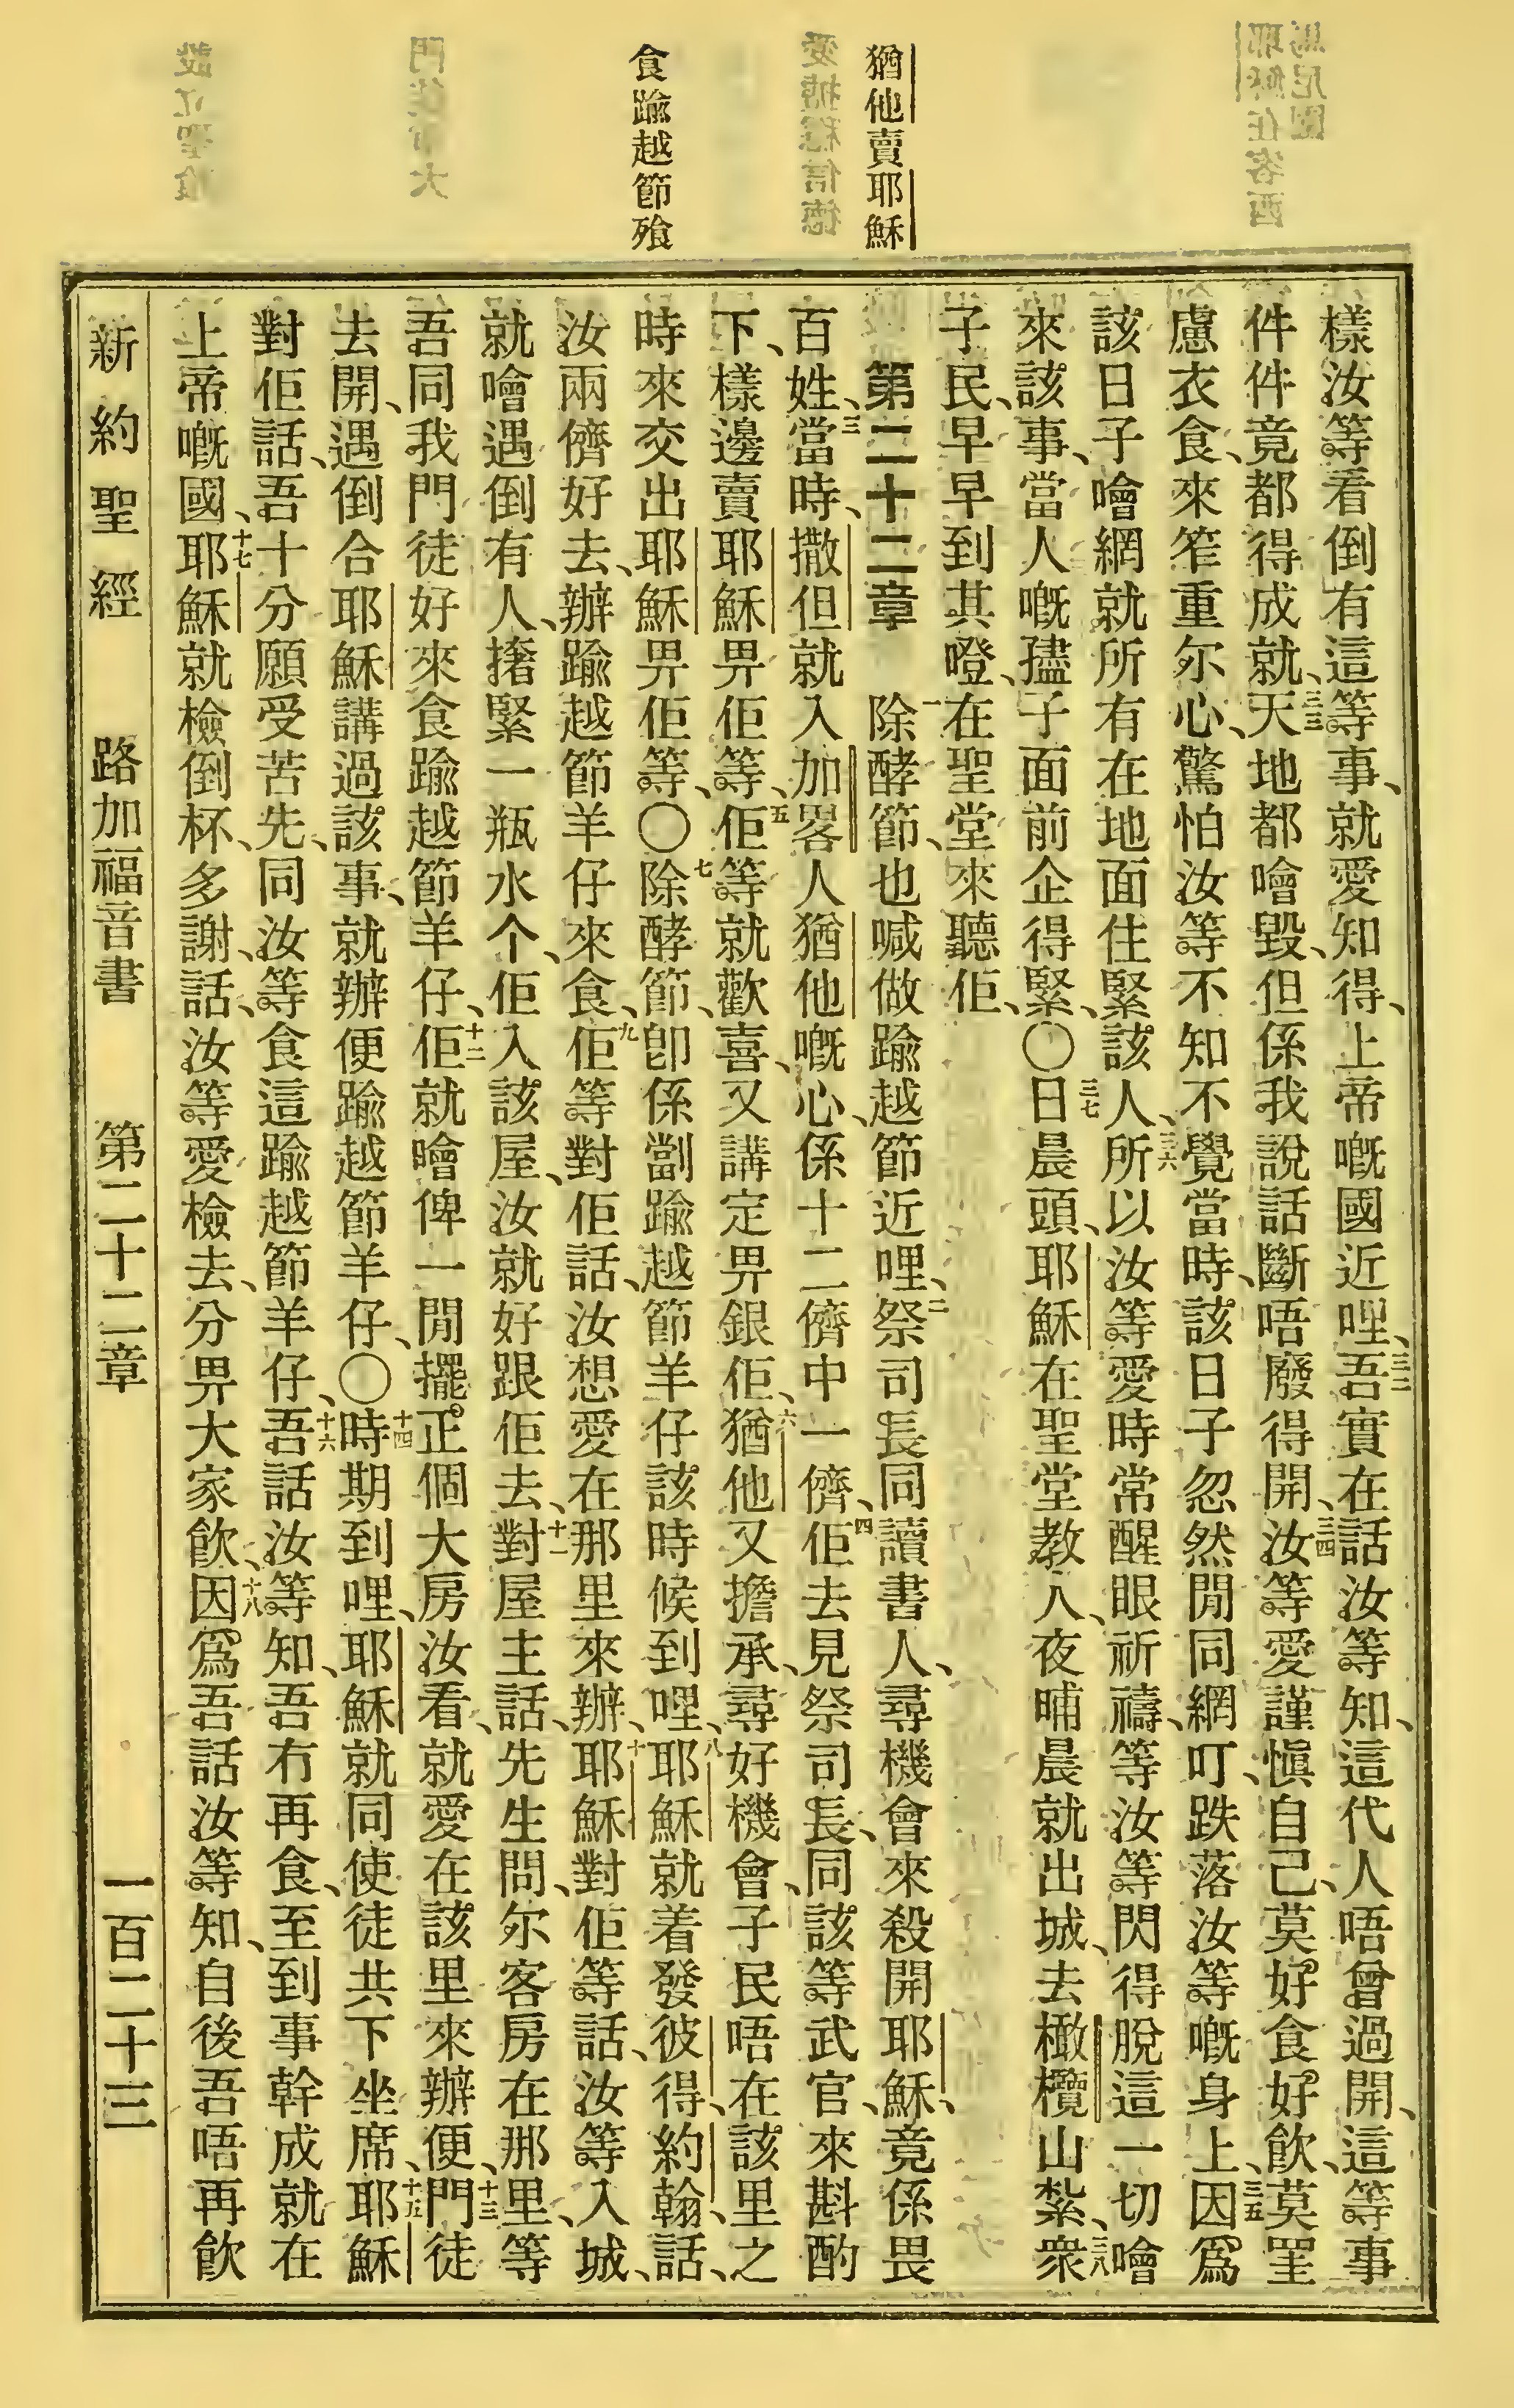 猶他賣耶穌
食踰越節飱
樣汝等看倒有這等事、就愛知得、上帝嘅國近哩、三二吾實在話汝等知、這代人唔曾過開、這等事
件件竟都得成就、三三天地都噲毀、但係我說話斷唔廢得開、三四汝等愛謹愼自己、莫好食好飲、莫罣
慮衣食、來笮重尔心、驚怕汝等不知不覺當時、該日子忽然閒同網叮、跌落汝等嘅身上、三五因爲
該日子噲網就所有在地面住緊該人、三六所以汝等愛時常醒眼祈禱、等汝等閃得脫這一切噲
來該事、當人嘅孻子面前企得緊、〇三七日晨頭、耶穌在聖堂教人、夜晡晨就出城、去橄欖山紮、三八衆
子民、早早到其噔、在聖堂來聽佢、
第二十二章 一除酵節、也喊做踰越節近哩、二祭司長同讀書人、尋機會來殺開耶穌、竟係畏
百姓、三當時、撒但就入加畧人猶他嘅心、係十二儕中一儕、四佢去見祭司長、同該等武官、來斟酌
下、樣邊賣耶穌畀佢等、五佢等就歡喜、又講定畀銀佢、六猶他又擔承、尋好機會、子民唔在該里之
時來交出耶穌畀佢等、〇七除酵節、卽係劏踰越節羊仔該時候到哩、八耶穌就着發彼得、約翰、話、
汝兩儕好去、辦踰越節羊仔來食、九佢等對佢話、汝想愛在那里來辦、十耶穌對佢等話、汝等入城、
就噲遇倒有人、㨋緊一瓶水个、佢入該屋、汝就好跟佢去、十一對屋主話、先生問、尔客房在那里、等
吾同我門徒好來食踰越節羊仔、十二佢就噲俾一閒擺正個大房汝看、就愛在該里來辦便、十三門徒
去開、遇倒合耶穌講過該事、就辦便踰越節羊仔、〇十四時期到哩、耶穌就同使徒共下坐席、十五耶穌
對佢話、吾十分願受苦先、同汝等食這踰越節羊仔、十六吾話汝等知、吾冇再食、至到事幹成就在
上帝嘅國、十七耶穌就檢倒杯、多謝、話、汝等愛檢去、分畀大家飲、十八因爲吾話汝等知、自後吾唔再飲
新約聖經 路加福音書 第二十二章 一百二十三